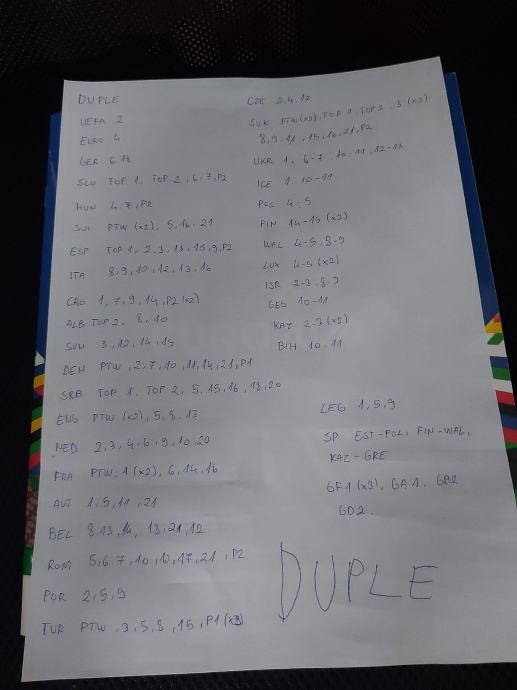 DUPLE
UEFA 2
EURO 4
GER 6.18
SCO TOP 1, TOP 2, 6, 7, P2
HUN 4, 7, P2
SUI PTW (x2), 5, 16, 21
ESP TOP 1, 2, 3, 13, 15, 9, P2
ITA 8, 9, 10, 12, 13, 16
CRO 1, 7, 9, 14, P2 (x2)
ALB TOP 2, 8, 10
3, 12, 14, 19
DEN PTW, 2, 7, 10, 11, 14, 21, P1
SRB TOP 1, TOP 2, 5, 15, 16, 20
ENG PTW (x2), 5, 8, 13
NED 2, 3, 4, 6, 9, 10, 20
FRA PTW, 1 (x2), 6, 14, 16
AUT 1, 5, 11, 21
BEL 8, 13, 14, 18, 21, 12
ROM 5, 6, 7, 10, 17, 21, P2
POR 2, 5, 9
TUR PTW, 3, 5, 8, 15, P1
CZE 2.4.17
SVK PTW (x2), TOP 1, TOP 2, 3 (x2)
8, 9, 11, 15, 16, 21, P2
UKR 1, 6-7, 10-11, 12-13
ICE 1, 10-11
POL 4-5
FIN 14-15 (x2)
WAL 4-5, 8-9
LUX 4-5 (x2)
ISR 2-3, 8-9
GEO 10-11
KAZ 2-3 (x2)
BIH 10-11
LEG 1, 5, 9
SP EST-POL, FIN-WAL,
KAZ-GRE
GF1 (x3), GA1, GB2
GD2
DUPLE